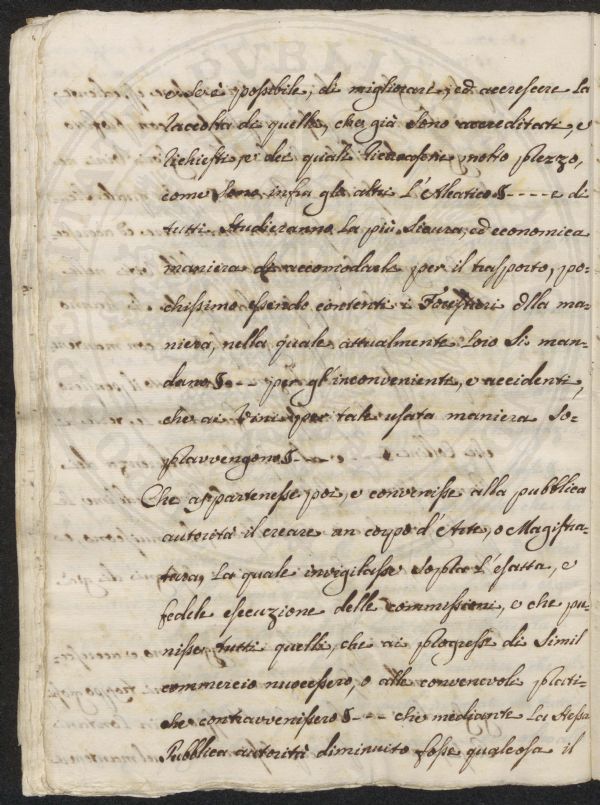 e se è possibile, di migliorare, ed accrescere la
raccolta di quelle, che già sono accreditate, e
richieste, e dei quali ricavasene molto prezzo,
come sono infra gli altri l'Aleatico §---- e di
tutti studieranno la più sicura, ed economica
maniera di accomodarle per il trasporto, po-
chissimo essendo contenti i Forestieri della ma-
niera, nella quale attualmente loro si man-
dano §--- per gl'inconvenienti, e accidenti,
che ai Vini per tale usata maniera so-
pravvengono §----
Che appartenesse poi, e convenisse alla pubblica
autorità il creare un corpo d'Arte, o Magistra-
tura, la quale invigilasse sopra l'esatta, e
fedele esecuzione delle commissioni, e che pu-
nisse tutti quelli, che ai progressi di simil
commercio nuocessero, o alle convenevoli prati-
che contravvenissero §--- che mediante la stessa
Pubblica autorità diminuito fosse qualcosa il